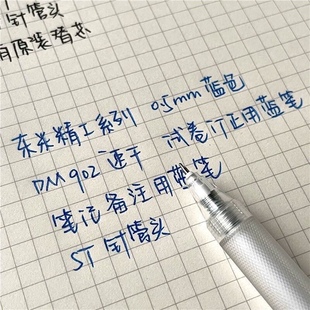 针管头
有原装替芯
东米精工系列 0.5mm 蓝色
DM902 速干 试卷订正用蓝笔
笔记备注用蓝笔
ST 针管头